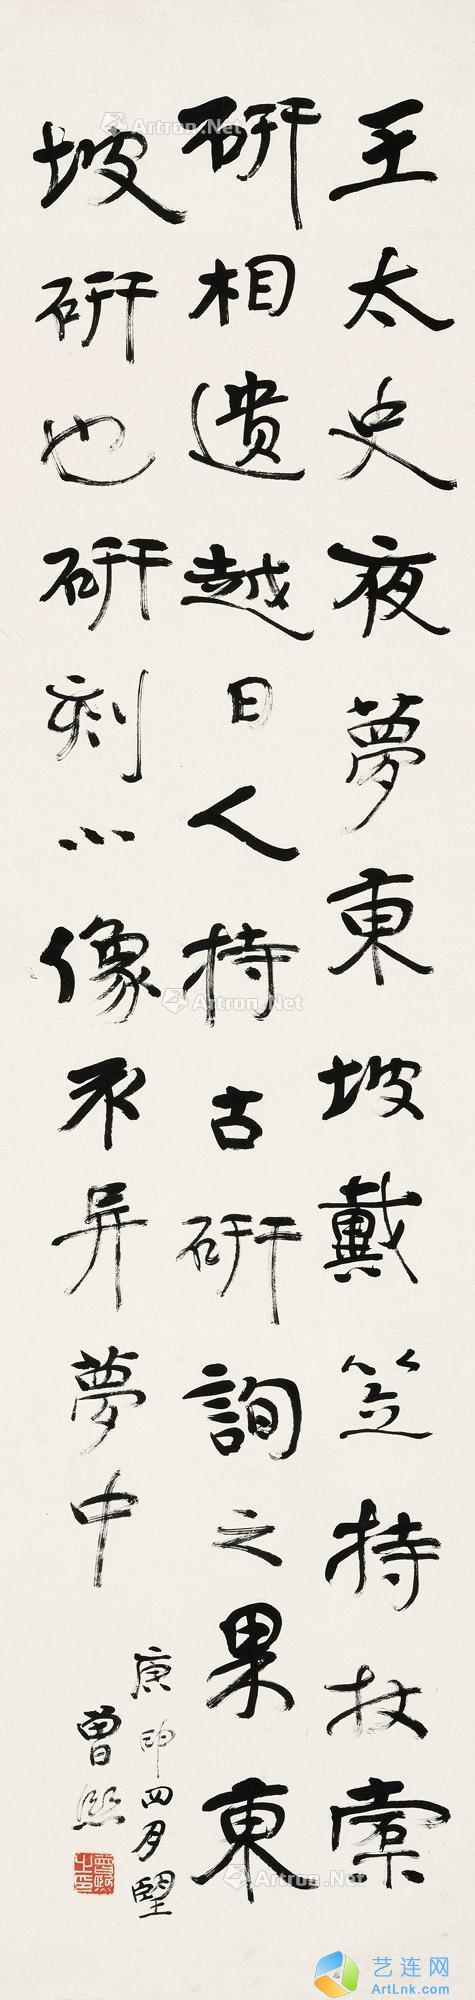 王太史夜夢東坡戴笠持杖
研相遺越日人持古研詢之果東
坡研也研刻小像不異夢中
庚申四月望
曾熙
Artron.Net
Artron.Net
Artron.Net
Artron.Net
Artron.Net
Artron.Net
艺连网
ArtLnk.com